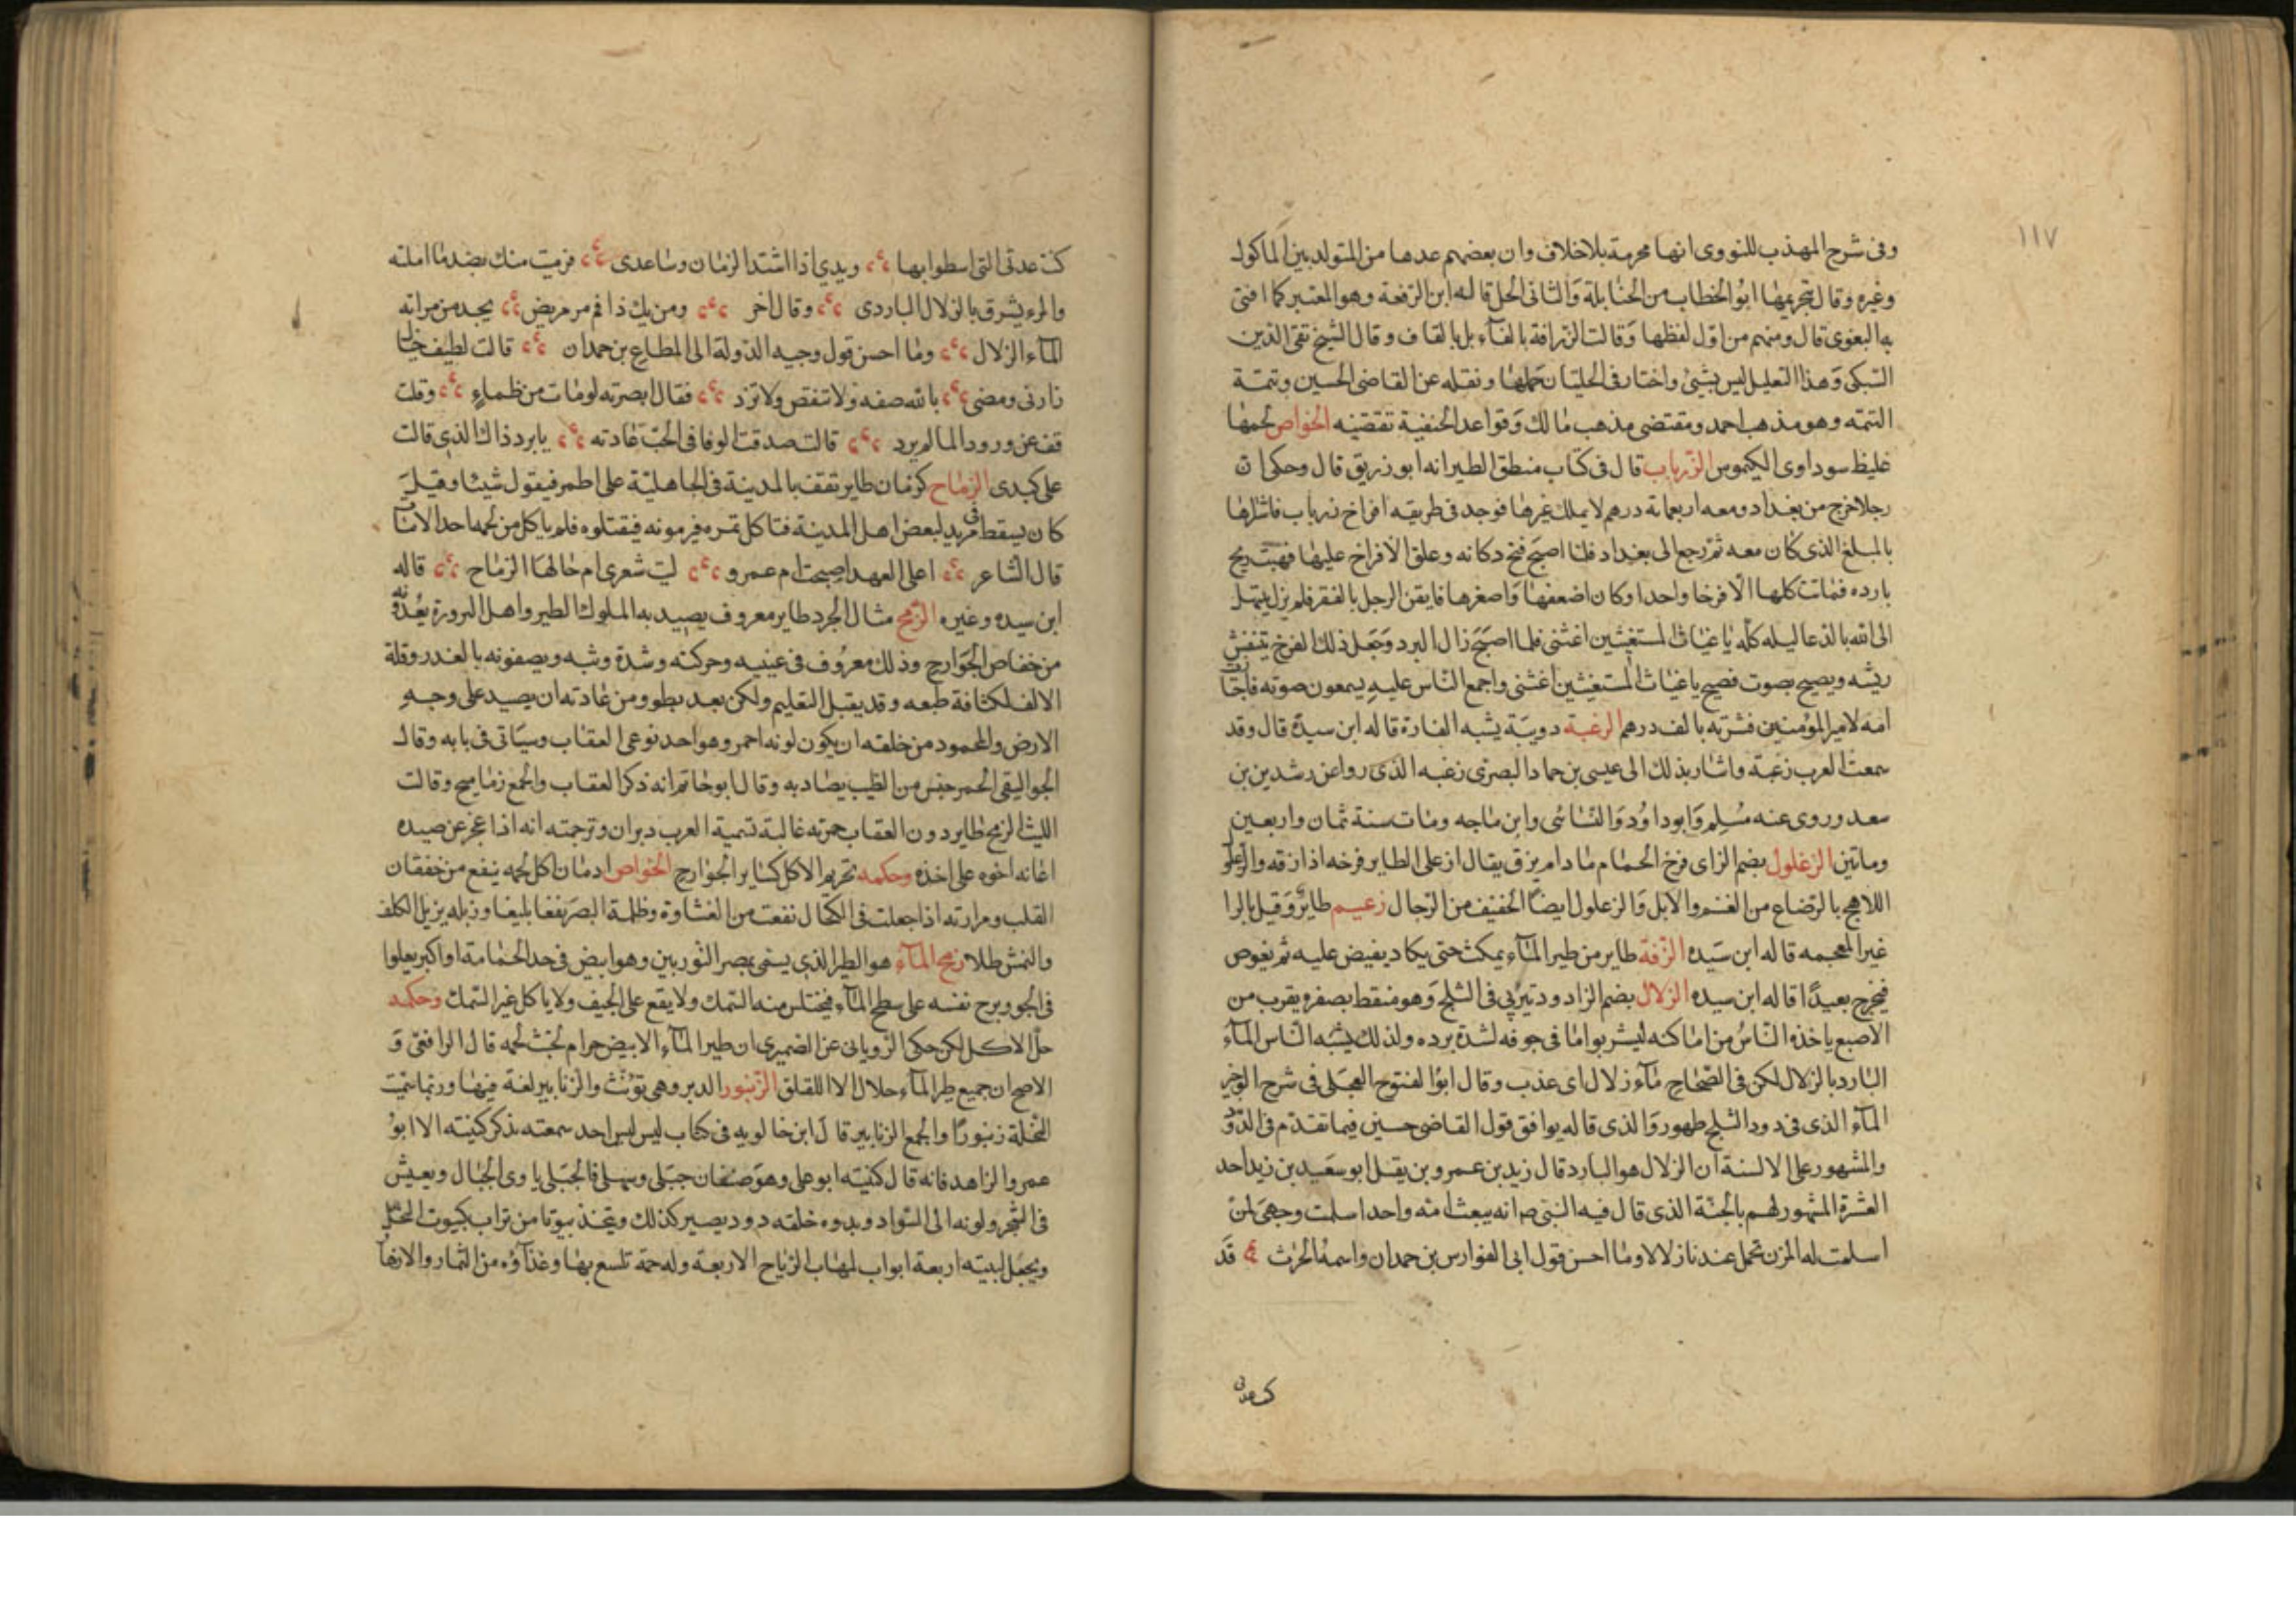 ١١٧
وفى شرح المهذب للنووى انها محرمة بلا خلاف وان بعضهم عدها من المتولد بين الماكول
وغيره وقال بتحريمها ابو الخطاب من الحنابلة والثانى الحل قاله ابن الرفعة وهو المعتبر كما افتى
به البغوى قال ومنهم من اول لفظها وقالت الزرافة بالفاء بل بالقاف وقال الشيخ تقى الدين
السبكى وهذا التعليل ليس بشئ واختار فى الحلبيات حلها ونقله عن القاضى الحسين وتتمة
التتمه وهو مذهب احمد ومقتضى مذهب مالك وقواعد الحنفية تقتضيه الخواص لحمها
غليظ سوداوى الكيموس الزرياب قال فى كتاب منطق الطير انه ابو زريق قال وحكى ان
رجلا خرج من بغداد ومعه اربعمائة درهم لا يملك غيرها فوجد فى طريقه افراخ زرياب فاشتراها
بالمبلغ الذى كان معه ثم رجع الى بغداد فلما اصبح فتح دكانه وعلق الافراخ عليها فهبت ريح
بارده فماتت كلها الا فرخا واحدا وكان اضعفها واصغرها فايقن الرجل بالفقر فلم يزل يبتهل
الى الله بالدعا ليله كله يا غياث المستغيثين اغثنى فلما اصبح زال البرد وجعل ذلك الفرخ ينفش
ريشه ويصيح بصوت فصيح يا غياث المستغيثين اغثنى واجمع الناس عليه يسمعون صوته فاجتازت
امه لامير المؤمنين فشرته بالف درهم الزغبة دويبة يشبه الفارة قاله ابن سيدة قال وقد
سمعت العرب زغبة واشار بذلك الى عيسى بن حماد البصرى زغبه الذى روا عن رشدين بن
سعد وروى عنه مسلم وابو داود والنسائى وابن ماجه ومات سنة ثمان واربعين
وماتين الزغلول بضم الزاى فرخ الحمام مادام يزق يقال ازغل الطاير فرخه اذا زقه والزغلو
اللاهج بالرضاع من الغنم والابل والزعلول ايضا الخفيف من الرجال زعيم طاير وقيل بالرا
غير المعجمه قاله ابن سيده الزفة طاير من طير الماء يمكث حتى يكاد يفيض عليه ثم يغوص
فيخرج بعيدا قاله ابن سيده الزلال بضم الزاد ود يتربى فى الثلج وهو منقط بصفره يقرب من
الاصبع ياخذه الناس من اماكنه ليشربوا ما فى جوفه لشدة برده ولذلك يشبه الناس الماء
البارد بالزلال لكن فى الصحاح ماء زلال اى عذب وقال ابو الفتوح العجلى فى شرح الوجيز
الماء الذى فى دود الثلج طهور والذى قاله يوافق قول القاضى حسين فيما تقدم فى الدود
والمشهور على الالسنة ان الزلال هو البارد قال زيد بن عمرو بن يقل ابو سعيد بن زيد احد
العشرة المشهور لهم بالجنة الذى قال فيه النبى صم انه يبعث امة واحدا سلمت وجهى لمن
اسلمت له المزن تحمل عندنا زلالا وما احسن قول ابى الفوارس بن حمدان واسمه الحرث قد
كنت عدتى
كنت عدتى التى اسطوا بها ويدى اذا اشتد الزمان وساعدى فرميت منك بضد ما املته
والمرء يشرق بالزلال الباردى وقال اخر ومن يك ذا فم مر مريض يجد من مراته
الماء الزلال وما احسن قول وجيه الدولة الى المطاع بن حمدان قالت لطيف خيال
زارنى ومضى بالله صفه ولا تنقص ولا تزد فقال ابصرته لو مات من ظماء وقلت
قف عن ورود الما لم يرد قالت صدقت الوفا فى الحب عادته يا برد ذاك الذى قالت
على كبدى الزماح كرمان طاير تقف بالمدينة فى الجاهلية على اطم فيقول شيئا وقيل
كان يسقط فى مربد لبعض اهل المدينة فتاكل تمره فيرمونه فيقتلوه فلم ياكل من لحمه احد الا مات
قال الشاعر اعلى العهد اصبحت ام عمرو ليت شعرى ام خالها الزماح قاله
ابن سيده وغيره الزمج مثال الجرد طاير معروف يصيد به الملوك الطير واهل البرورة يعدونه
من خفاص الجوارح وذلك معروف فى عنييه وحركته وشدة وثبه ويصفونه بالغدر وقلة
الالف لكثافة طبعه وقد يقبل التعليم ولكن بعد بطو ومن عادته ان يصيد على وجه
الارض والمحمود من خلقه ان يكون لونه احمر وهو احد نوعى العقاب وسياتى فى بابه وقال
الجواليقى الحمر جنس من الطيب يصاد به وقال ابو حاتم انه ذكر العقاب والجمع زماميح وقالت
الليث الزمج طاير دون العقاب حمرته غالبة تسمية العرب دبران وترجمته انه اذا عجز عن صيده
اغانه اخوه على اخذه وحكمه تحريم الاكل كساير الجوارح الخواص ادمان اكل لحمه ينفع من خفقان
القلب ومرارته اذا جعلت فى الكحال نفعت من الغشاوة وظلمة البصر نفعا بليغا وزبله يزيل الكلف
والنمش طلا زمج الماء هو الطير الذى يسمى بمصر النورس وهو ابيض فى حد الحمامة او اكبر يعلوا
فى الجو ويرج نفسه على سطح الماء فيختلس منه السمك ولا يقع على الجيف ولا ياكل غير السمك وحكمه
حل الاكل لكن حكى الرويانى عن الضميرى ان طير الماء الابيض حرام لخبث لحمه قال الرافعى و
الاصح ان جميع طير الماء حلال الا اللقلق الزنبور الدبر وهى تؤنث والزنابير لغة فيها وربما سميت
النحلة زنبورا والجمع الزنابير قال ابن خالويه فى كتاب ليس ليس احد سمعته يذكر كنيته الا ابو
عمرو الزاهد فانه قال كنيته ابو على وهو صنفان جبلى وسهلى فالجبلى ياوى الجبال ويعيش
فى الشجر ولونه الى السواد وبدوه خلقه دود يصير كذلك ويتخذ بيوتا من تراب كبيوت النحل
ويجعل لبيته اربعة ابواب لمهاب الرياح الاربعة وله حمة تلسع بها وغذاؤه من الثمار والازها